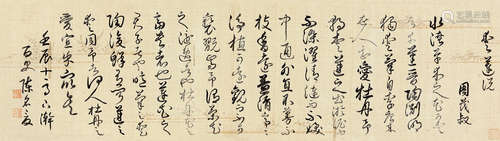 愛蓮說
周茂叔
水陸草木之花可愛
者甚蕃晉陶淵明
獨愛菊自李唐來
世人甚愛牡丹予
獨愛蓮之出於淤泥
而不染濯清漣而不妖
中通外直不蔓不
枝香遠益清亭亭
淨植可遠觀而不可
褻翫焉予謂菊花
之隱逸者也牡丹花之
富貴者也蓮花之
君子者也噫菊之愛
陶後鮮有聞蓮之
愛同予者何人牡丹之
愛宜乎衆矣
壬辰十
陳文